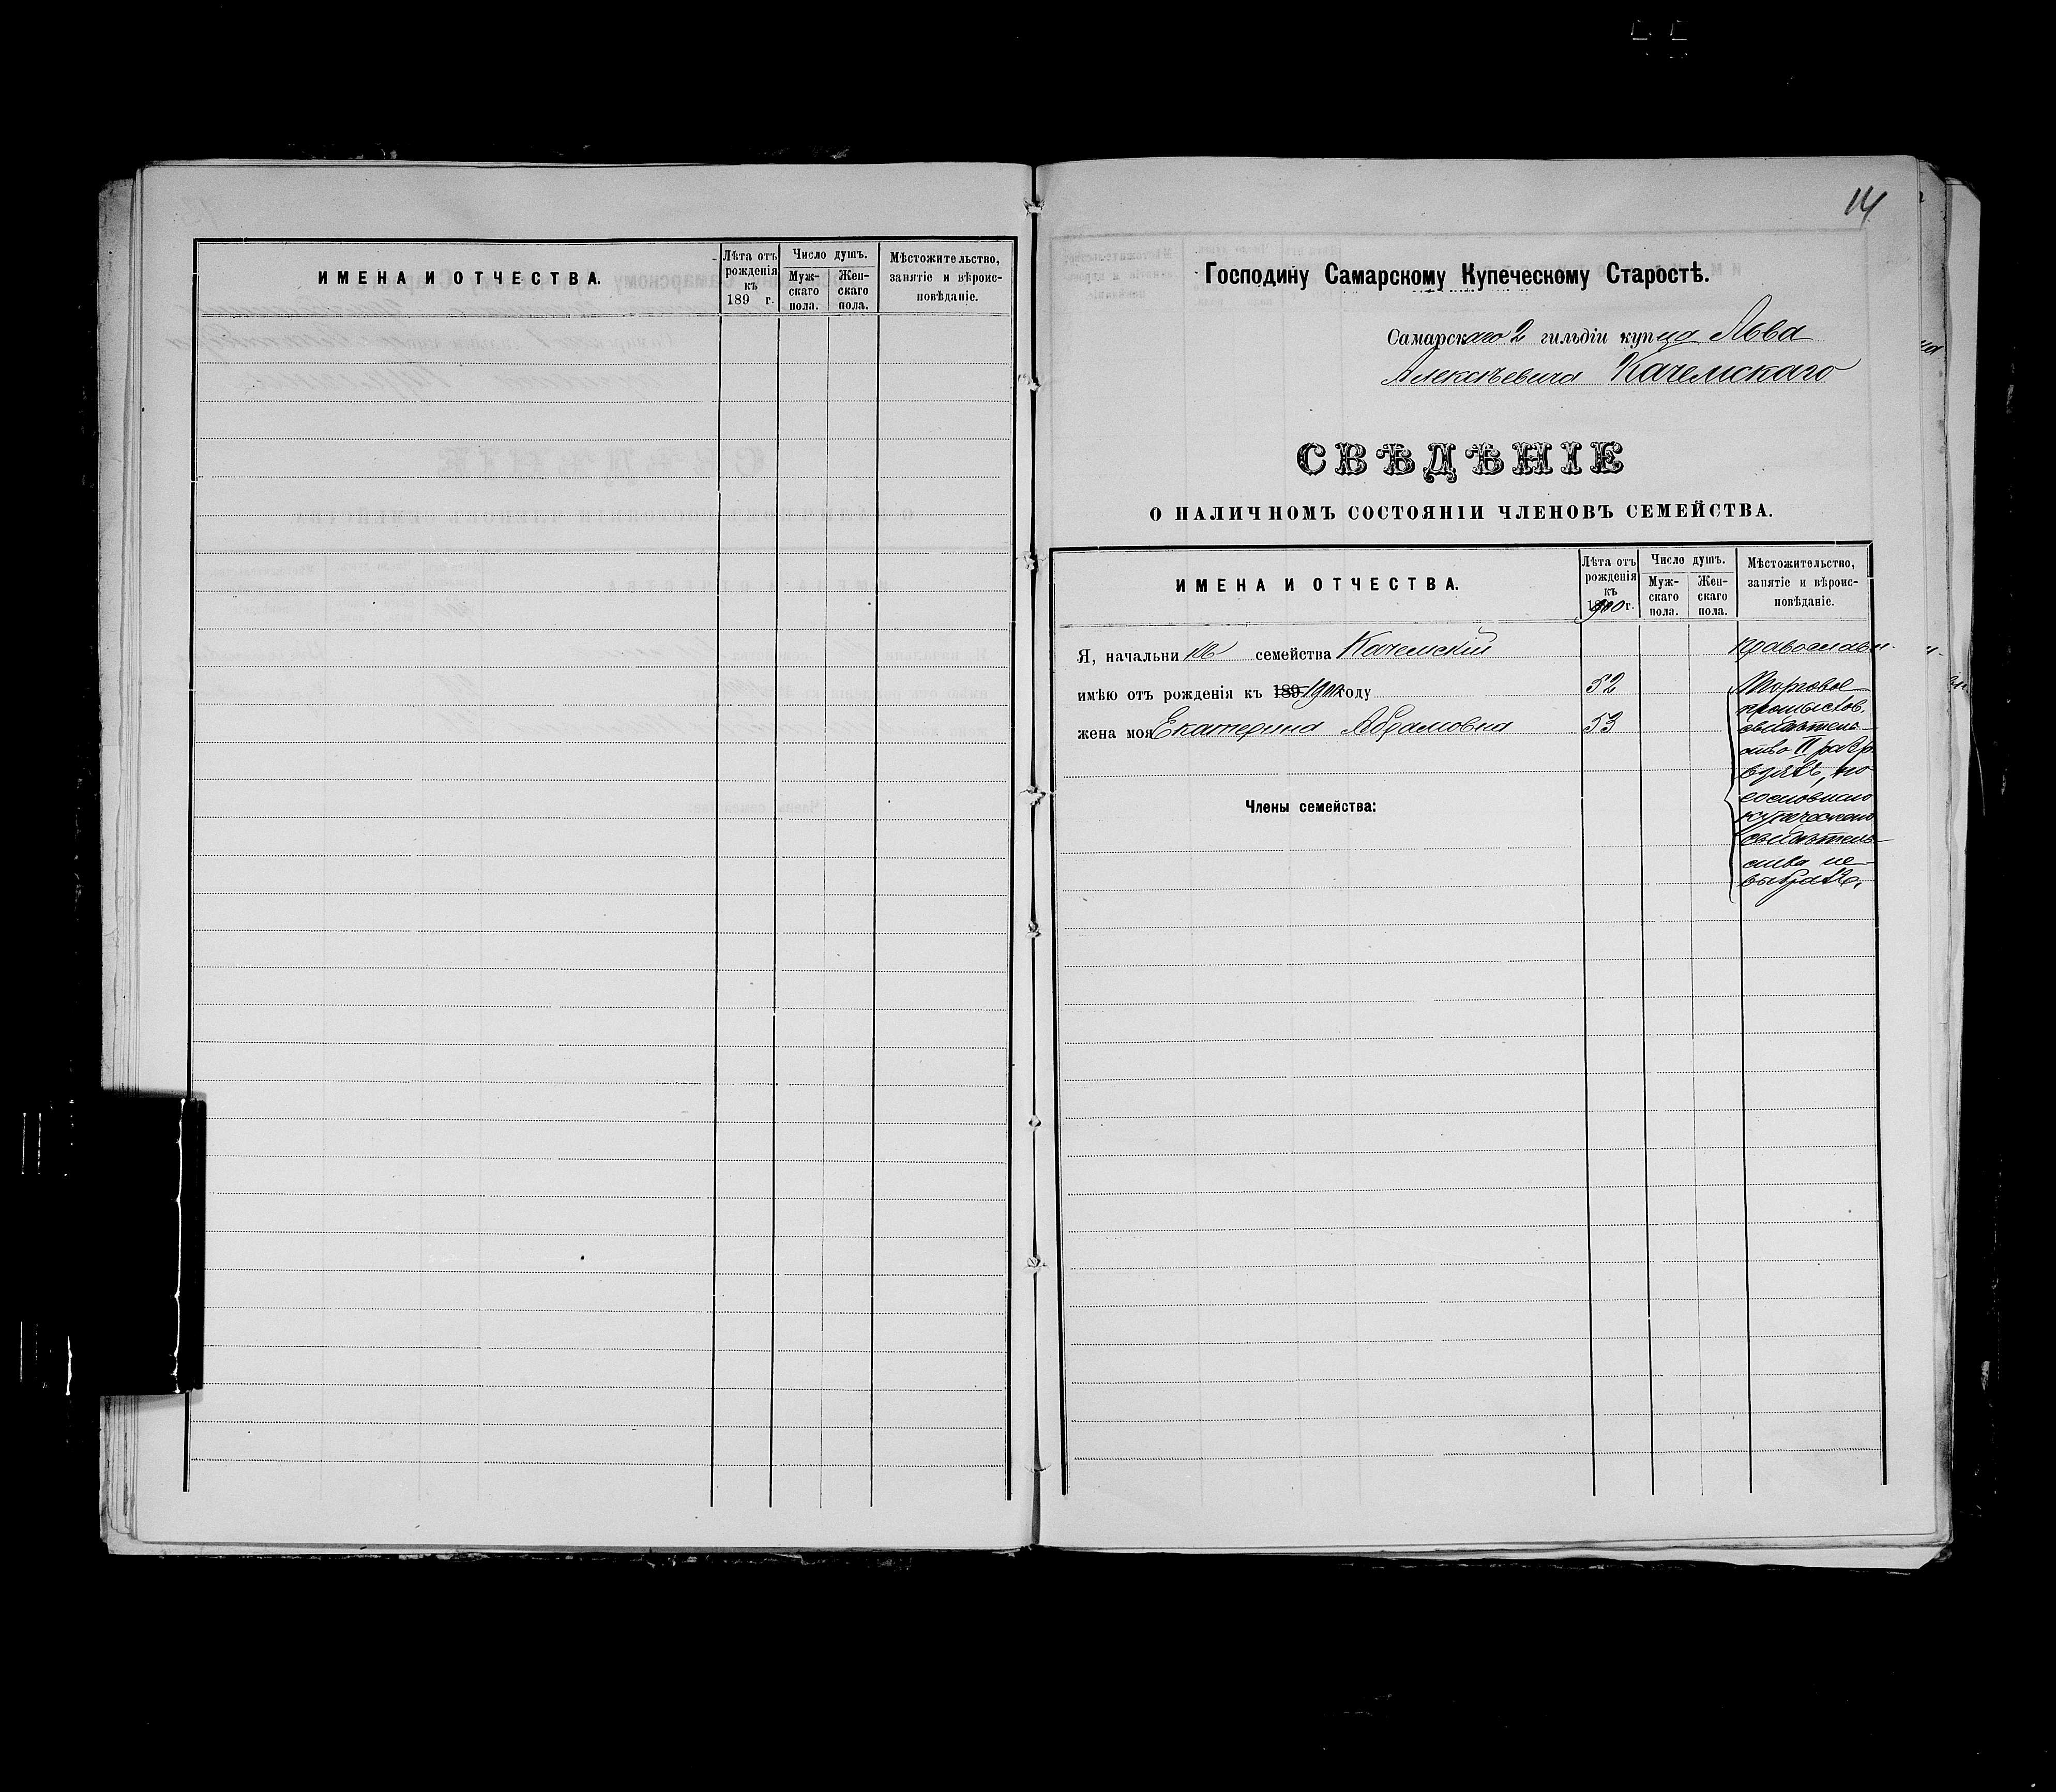 ИМЕНА И ОТЧЕСТВА.
Лѣта отъ рожденія къ 189 г.
Число душъ.
Муж-скаго пола.
Жен-скаго пола.
Мѣстожительство, занятіе и вѣроис-повѣданіе.
14
Господину Самарскому Купеческому Старостѣ.
Самарскаго 2 гильдіи купца Льва
Алексѣевича Качемскаго
СВѢДѢНІЕ
О НАЛИЧНОМЪ СОСТОЯНІИ ЧЛЕНОВЪ СЕМЕЙСТВА.
ИМЕНА И ОТЧЕСТВА.
Лѣта отъ рожденія къ 1900 г.
Число душъ.
Муж-скаго пола.
Жен-скаго пола.
Мѣстожительство, занятіе и вѣроис-повѣданіе.
Я, начальникъ семейства Качемскій православн.
имѣю отъ рожденія къ 189 1900 году 52
жена моя Екатерина Абрамовна 53
Торговое
промыслов.
свидѣтель-
ство II разр.
взялъ, но
сословнаго
купеческаго
свидѣтель-
ства не
выбралъ.
Члены семейства: